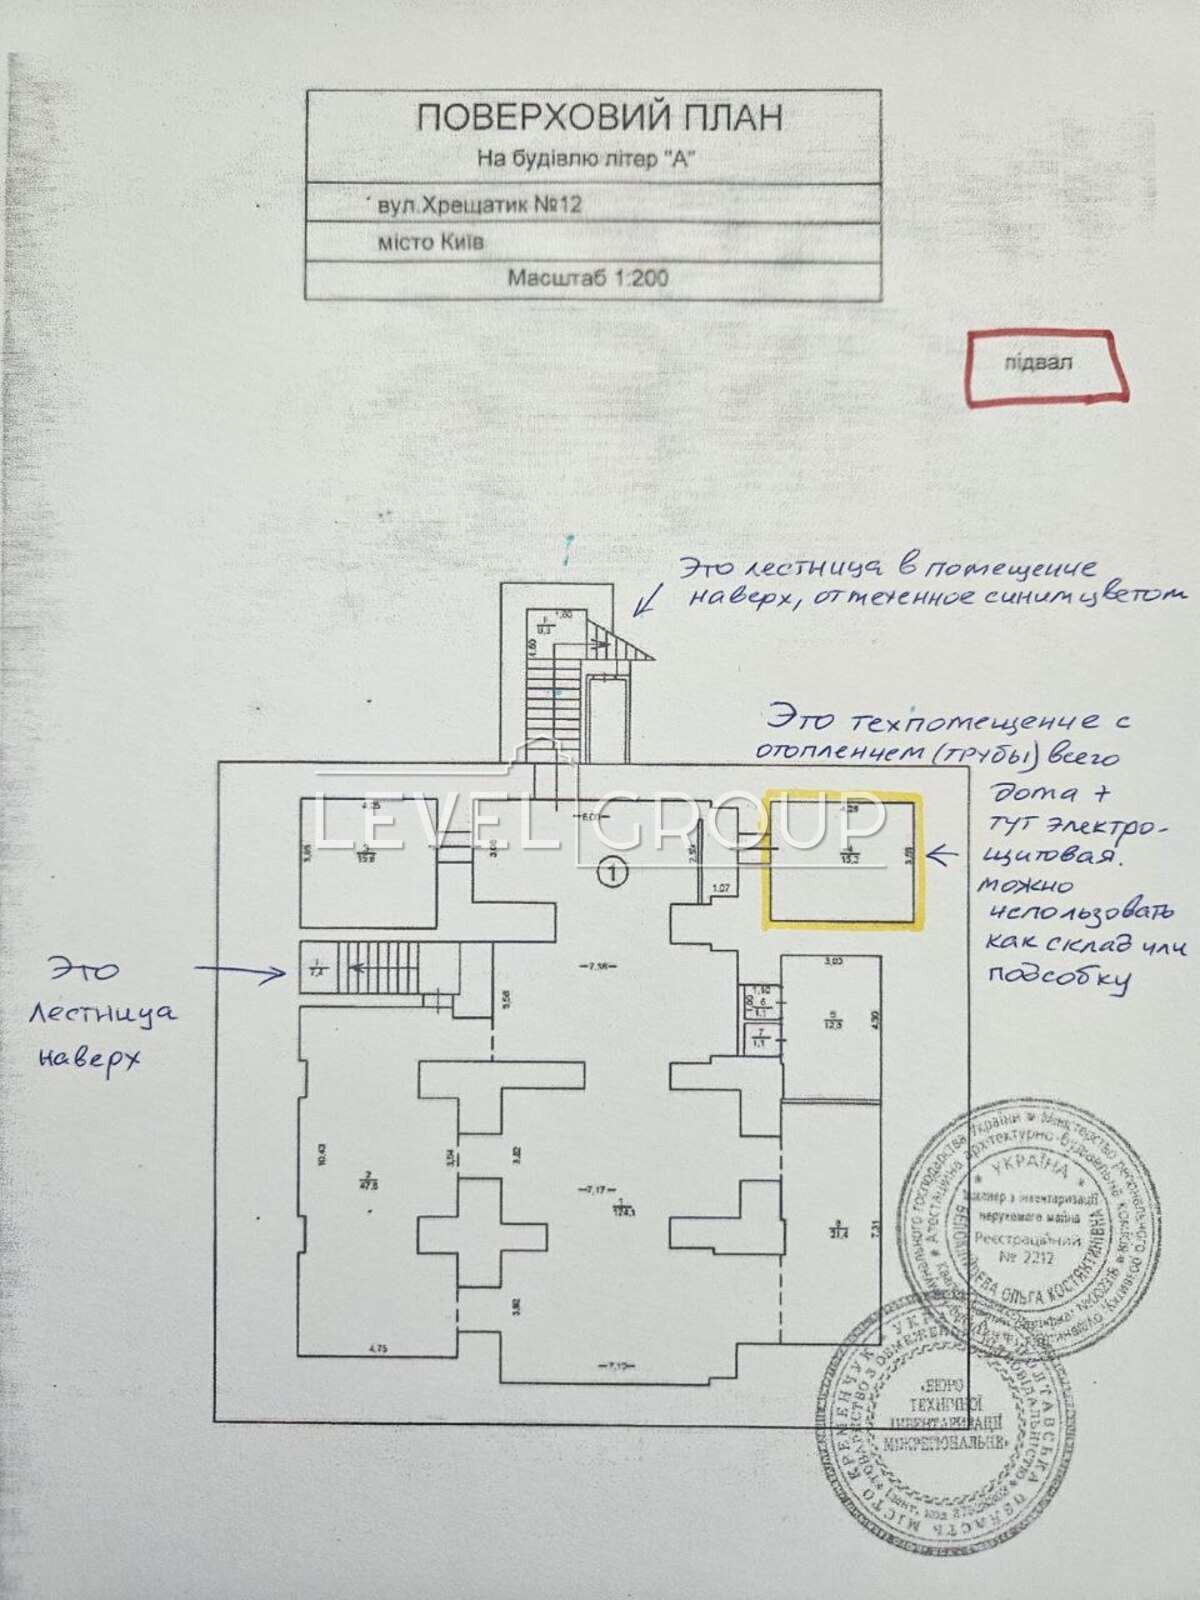 ПОВЕРХОВИЙ ПЛАН
На будівлю літер "А"
вул.Хрещатик №12
місто Київ
Масштаб 1:200
підвал
Это лестница в помещение
наверх, отмеченное синим цветом
Это техпомещение с
отоплением (трубы) всего
дома +
тут электро-
щитовая.
можно
использовать
как склад или
подсобку
Это
лестница
наверх
LEVEL GROUP
1,60
4,60
4,05
6,00
3,85
15,6
15,2
3,69
1,07
1
7,38
7,4
3,03
5
12,3
4,30
1,10
6
1,1
7
1,1
10,43
2
47,6
3,54
3,82
7,17
1
124,3
21,4
7,31
3,92
4,75
7,10
УКРАЇНА
Інженер з інвентаризації
нерухомого майна
Реєстраційний
№ 2212
ОЛЬГА КОСТЯНТИНІВНА
"БЮРО
ТЕХНІЧНОЇ
ІНВЕНТАРИЗАЦІЇ
МІЖРЕГІОНАЛЬНЕ"
МІСТО КРЕМЕНЧУК
ПОЛТАВСЬКА ОБЛАСТЬ